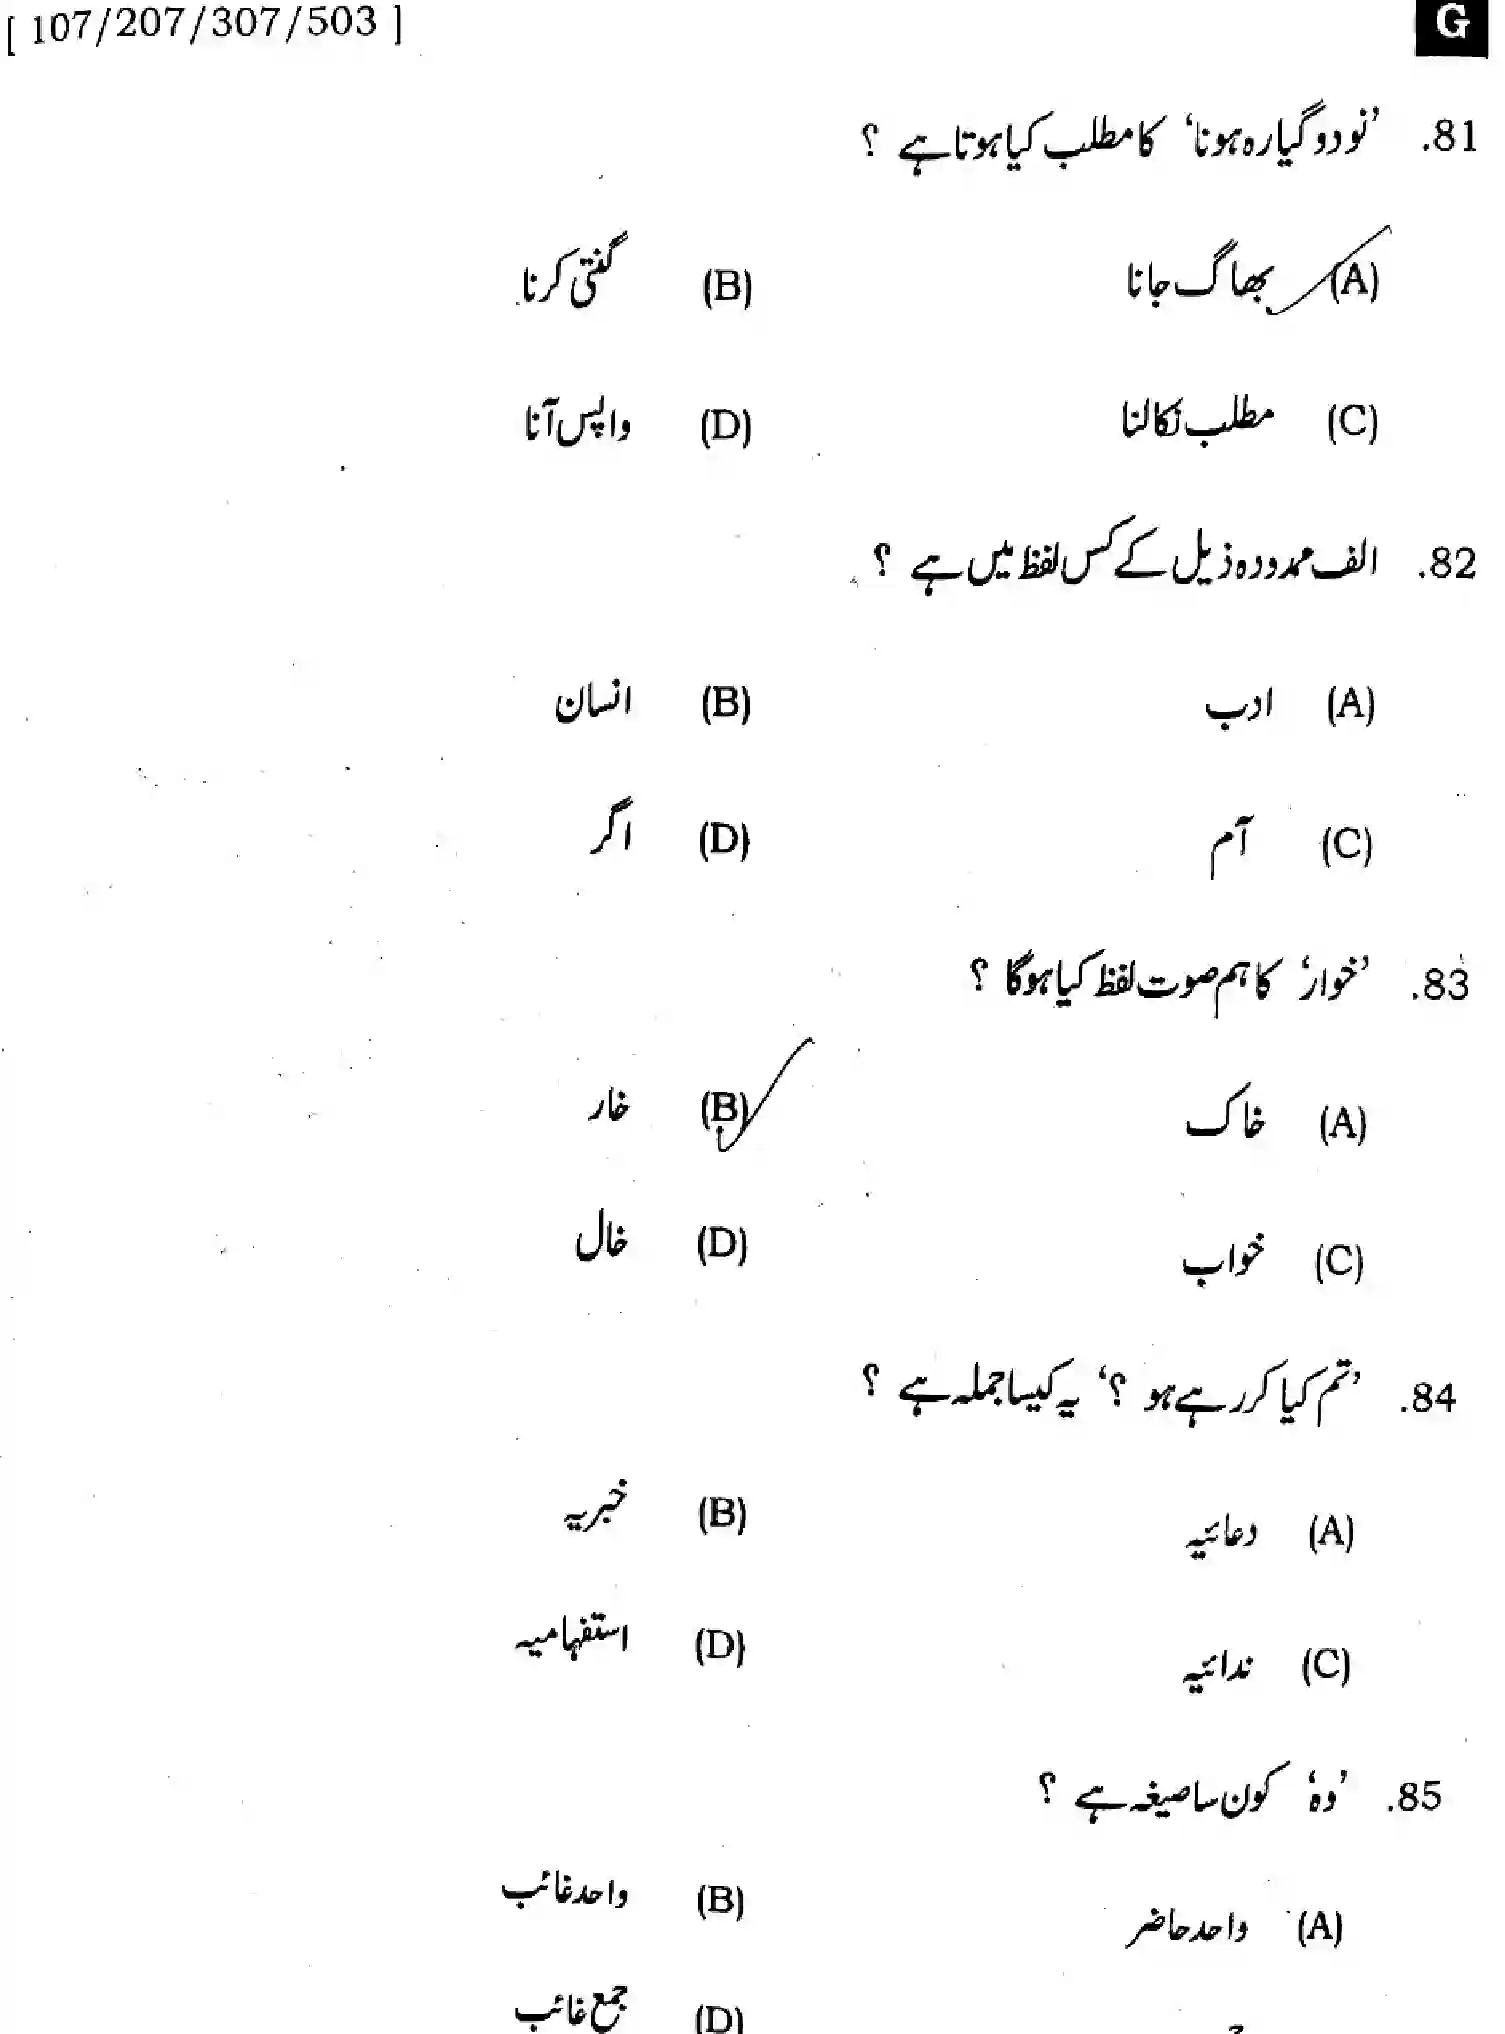 [ 107/207/307/503 ] G
81. ’نو دو گیارہ ہونا‘ کا مطلب کیا ہوتا ہے ؟
(A) بھاگ جانا (B) گنتی کرنا
(C) مطلب نکالنا (D) واپس آنا
82. الف ممدودہ ذیل کے کس لفظ میں ہے ؟
(A) ادب (B) انسان
(C) آم (D) اگر
83. ’خوار‘ کا ہم صوت لفظ کیا ہوگا ؟
(A) خاک (B) خار
(C) خواب (D) خال
84. ’تم کیا کر رہے ہو ؟‘ یہ کیسا جملہ ہے ؟
(A) دعائیہ (B) خبریہ
(C) ندائیہ (D) استفہامیہ
85. ’وہ‘ کون سا صیغہ ہے ؟
(A) واحد حاضر (B) واحد غائب
(D) جمع غائب